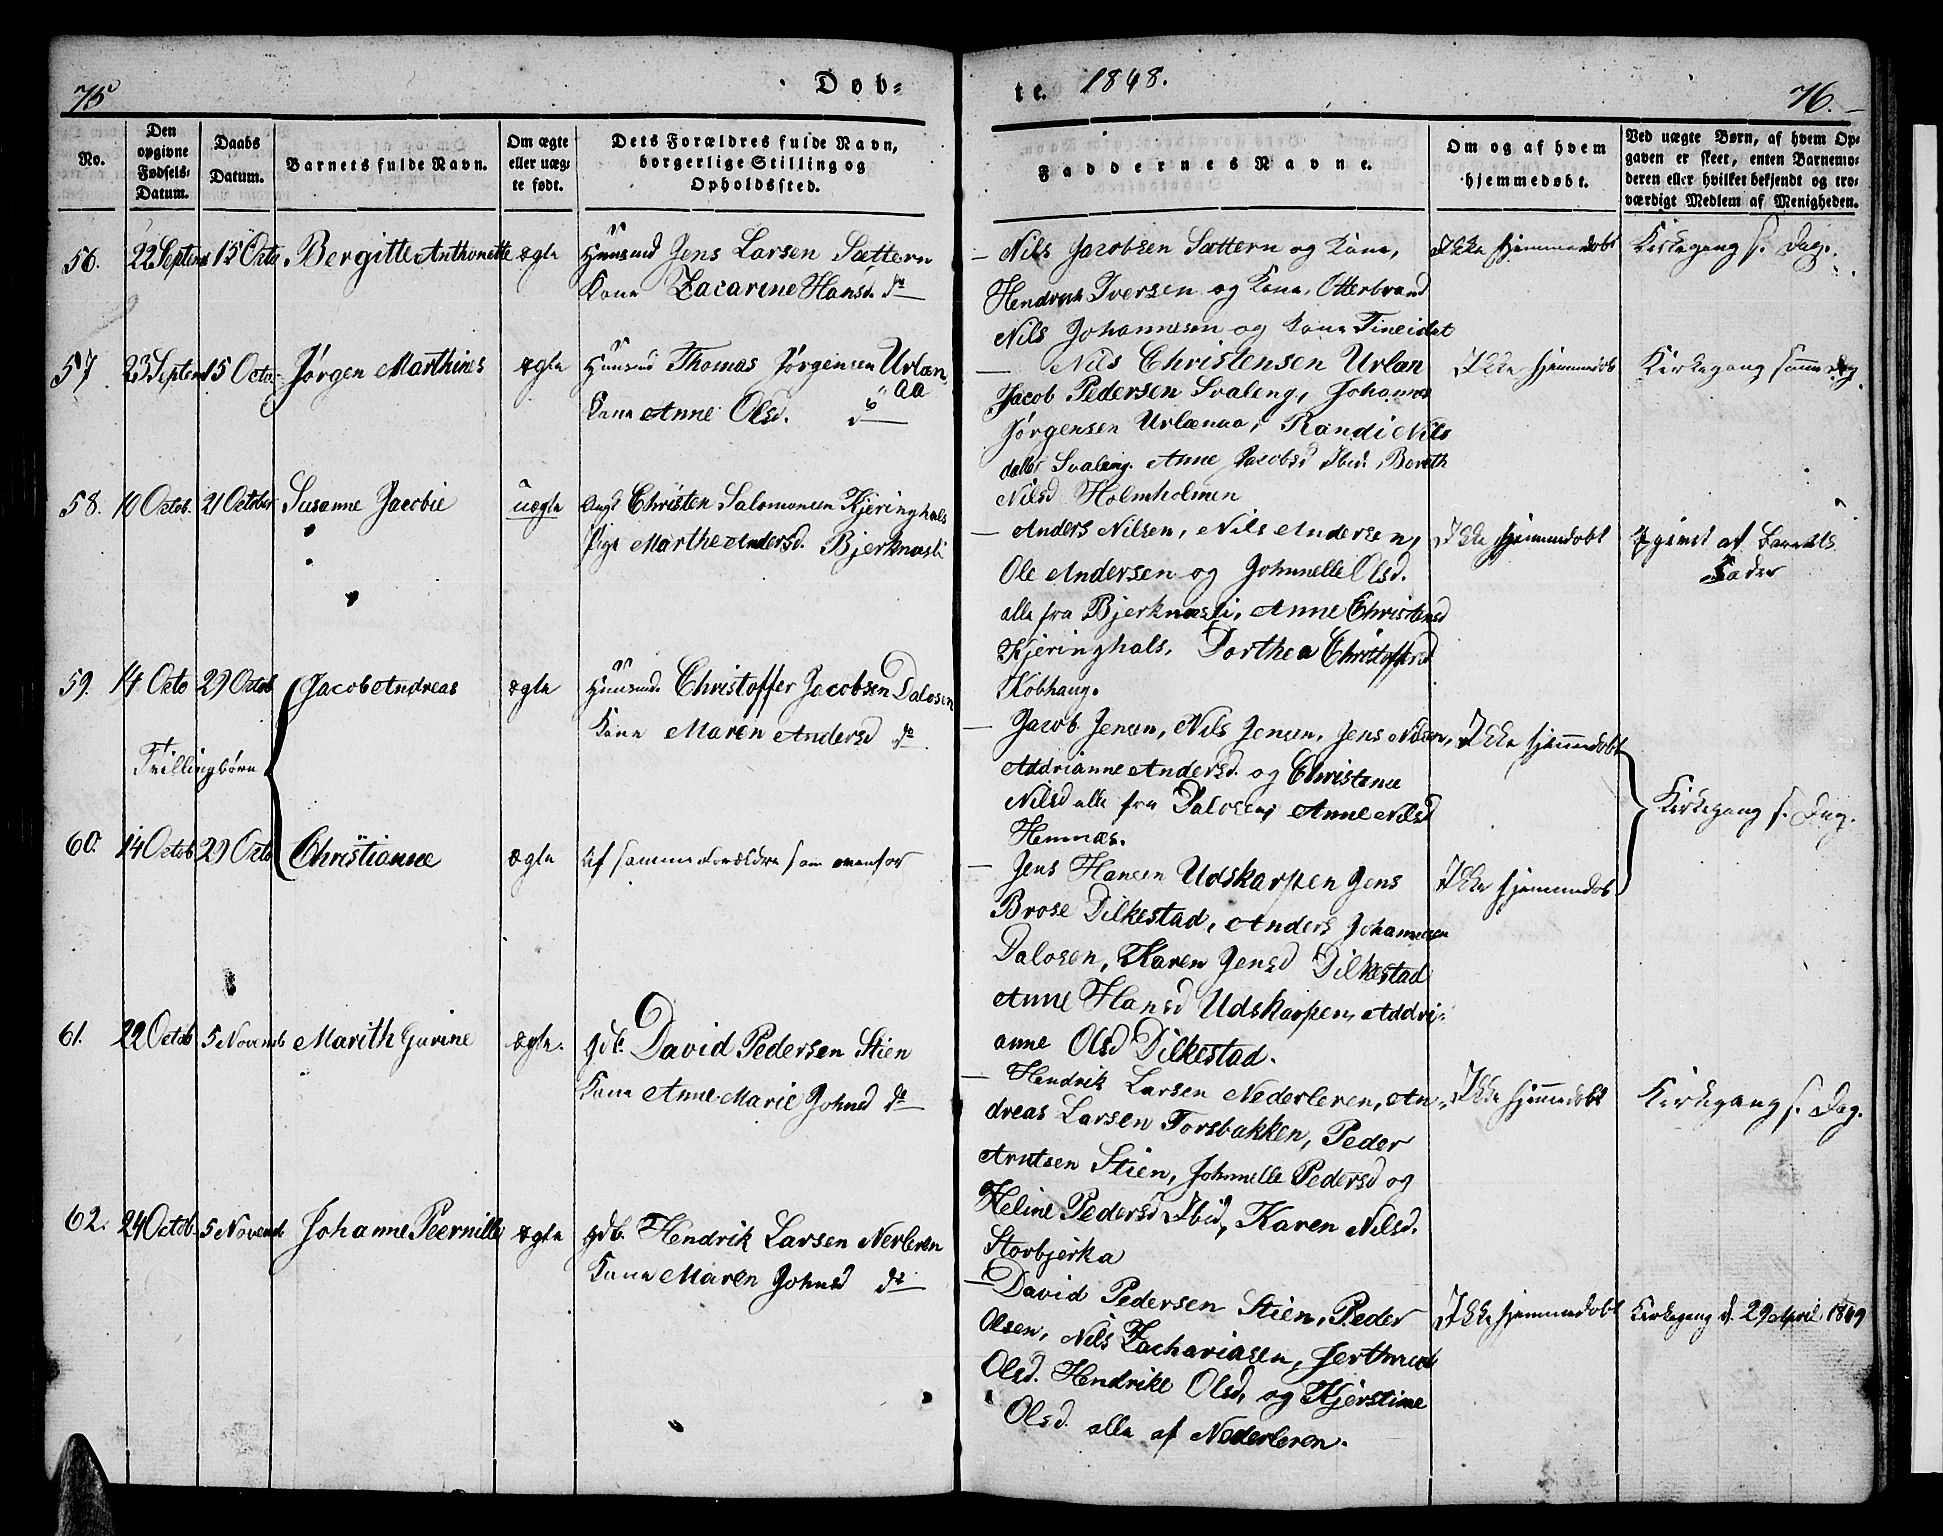 75
Døb-
te. 1848.
76.
No.
Den opgivne Fødsels-Datum.
Daabs Datum.
Barnets fulde Navn.
Om ægte eller uæg-te født.
Dets Forældres fulde Navn, borgerlige Stilling og Opholdssted.
Faddernes Navne.
Om og af hvem hjemmedøbt.
Ved uægte Børn, af hvem Op-gaven er skeet, enten Barnemo-deren eller hvilket bekjendt og tro-værdigt Medlem af Menigheden.
56. 22 Septem 15 Octo. Bergitte Anthonette ægte Huusmd Jens Larsen Sættern
Kone Zacarine Hansd. do
– Nils Jacobsen Sættern og Kone,
Hendrik Iversen og Kone, Otterbrand
Nils Johannesen og Kone Tineidet
Ikke hjemmedobt
Kirkegang s. Dag.
57 23 Septem 15 Octo. Jørgen Marthines ægte Huusmd Thomas Jørgensen Urlan
aa
Kone Anne Olsd. do
– Nils Christensen Urlan
Jacob Pedersen Svaleng, Johannes
Jørgensen Urlanaa, Randi Nils
datter Svaleng. Anne Jacobsd Ibid. Bereth
Nilsd Holmholmen
Ikke hjemmedob
Kirkegang samme Dag
58. 10 Octob. 21 October Susanne Jacobie uægte Ungk Christen Salomonsen Kjeringhals
Pige Marthe Andersd. Bjerknæsli
– Anders Nilsen, Nils Andersen,
Ole Andersen og Johnnelle Olsd.
alle fra Bjerknæsli, Anne Christensd
Kjeringhals, Dorthea Christoffersd
Kobhaug.
Ikke hjemmedobt
af Barnets
Fader
59. 14 Octo 29 Octob Jacob Andreas ægte Huusmd. Christoffer Jacobsen Dalosen
Kone Maren Andersd do
Tvillingbørn
– Jacob Jensen, Nils Jensen, Jens Nilsen,
Addrianne Andersd. og Christense
Nilsd alle fra Dalosen, Anne Nilsd
Hemnæs.
Ikke hjemmedobt
Kirkegang s. Dag.
60. 14 Octob 29 Octo Christianne ægte Af samme Forældre som ovenfor
– Jens Hansen Udskarpen Jens
Brose Dilkestad, Anders Johannesen
Dalosen, Karen Jensd Dilkestad
Anne Hansd Udskarpen, Addri-
anne Olsd Dilkestad.
Ikke hjemmedob
61. 22 Octob 5 Novemb Marith Gurine ægte. Gdb. David Pedersen Stien
Kone Anne Marie Johnsd do
– Hendrik Larsen Nederleren, An-
dreas Larsen Forsbakken, Peder
Arntsen Stien, Johnnelle Pedersd og
Heline Pedersd Ibid, Karen Nilsd.
Storbjerka
Ikke hjemmedobt
Kirkegang s. Dag.
62. 24 Octob. 5 Novemb Johanne Peernille ægte Gdb. Hendrik Larsen Nerleren
Kone Maren Johnsd do
– David Pedersen Stien, Peder
Olsen, Nils Zachariasen, Jertrud
Olsd. Hendrike Olsd, og Kjerstine
Olsd. alle af Nederleren.
Ikke hjemmedobt
Kirkegang d. 29 April 1849